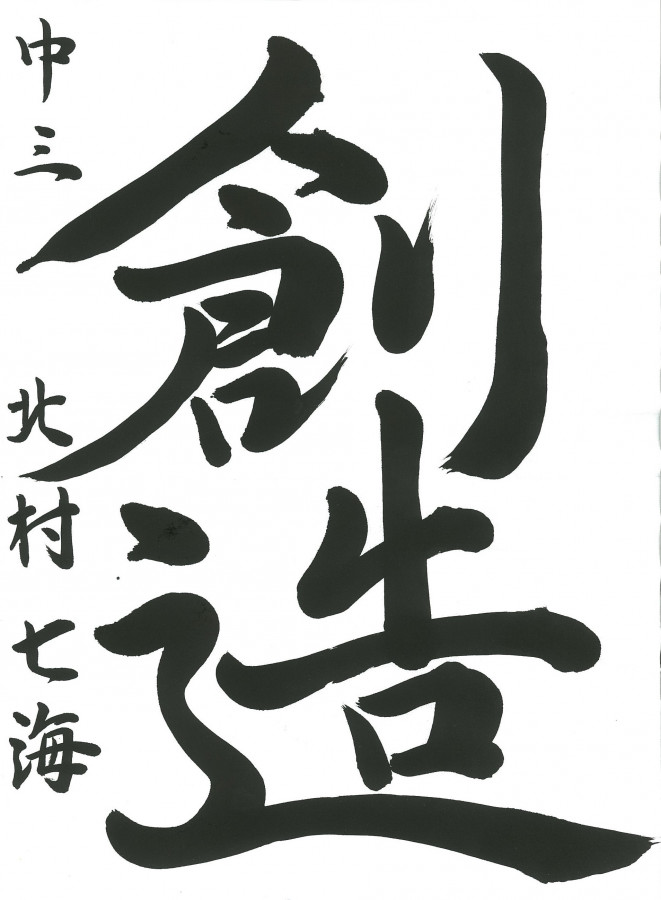 創造
中三 北村七海